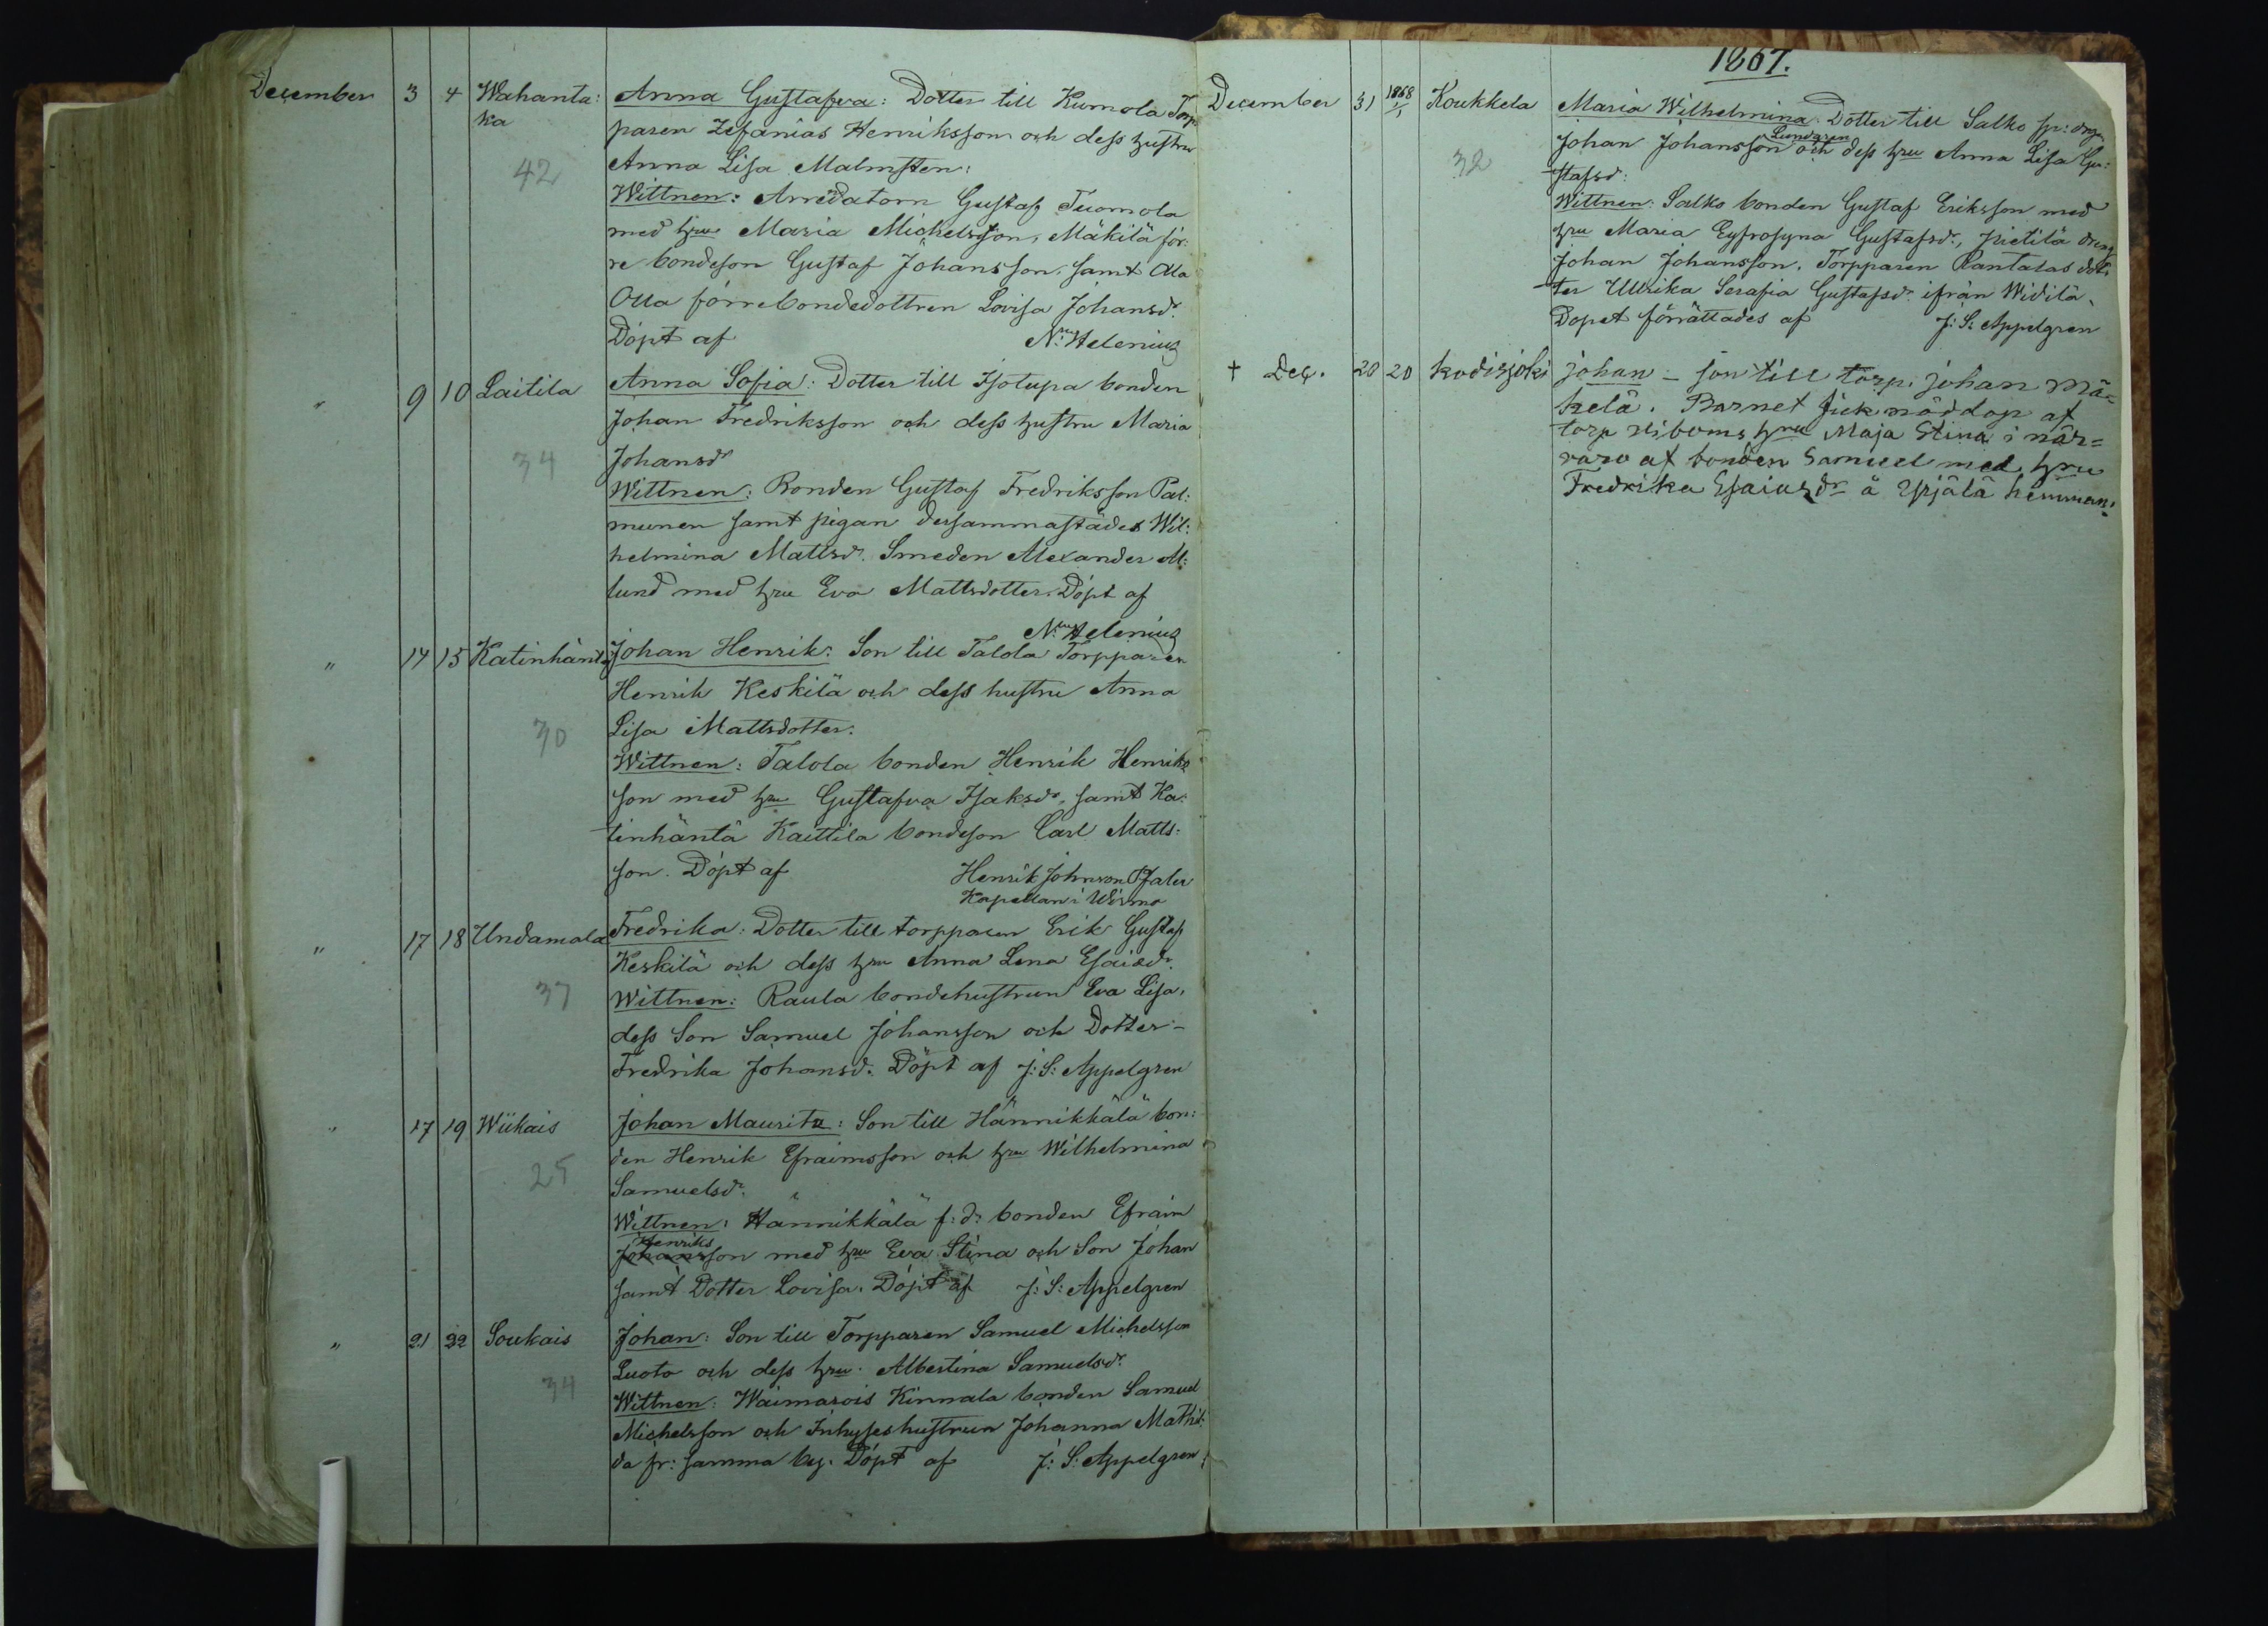 December 3 4 Wahanta: Anna Gustafva: Dotter till Kumola Torp
ka paren Zefanias Henriksson och dess hustru
42 Anna Lisa Malmsten:
Wittnen: Arredatorn Gustaf Tuomola
med hru Maria Michelsson, Mäkilä för:
re bondeson Gustaf Johansson, samt Ala
Olla förrebondedottren Lovisa Johansdr
Döpt af N: Helenius
" 9 10 Laitila Anna Sofia: Dotter till Isotupa bonden
Johan Fredriksson och dess hustru Maria
34 Johansdr
Wittnen: Bonden Gustaf Fredriksson Pal:
munen samt pigan dersammastädes Wil:
helmina Mattsdr. Smeden Alexander Al:
lund med hru Eva Mattsdotter. Döpt af
N: Helenius
" 14 15 Katinhäntä Johan Henrik: Son till Talola Torpparen
Henrik Keskilä och dess hustru Anna
30 Lisa Mattsdotter.
Wittnen: Talola bonden Henrik Henriks
son med hru Gustafva Isaksdr, samt Ka:
tinhäntä Kaittila bondeson Carl Matts:
son. Döpt af Henrik Johnsson
Kapellan i Wirmo
" 17 18 Undamala Fredrika: Dotter till torpparen Erik Gustaf
Keskilä och dess hru Anna Lena Esaisdr.
37 Wittnen: Raula bondehustrun Eva Lisa,
dess Son Samuel Johansson och Dotter-
Fredrika Johansdr. Döpt af J: S: Appelgren
" 17 19 Wiikais Johan Mauritz: Son till Hännikkälä bon:
den Henrik Efraimsson och hru Wilhelmina
25 Samuelsdr.
Wittnen: Hännikkälä f: d: bonden Efraim
Henriks
Johansson med hru Eva Stina och Son Johan
samt Dotter Lovisa. Döpt af J: S: Appelgren
" 21 22 Soukais Johan: Son till Torpparen Samuel Michelsson
Luoto och dess hru Albertina Samuelsdr.
34 Wittnen: Waimarois Kinnala bonden Samuel
Michelsson och Inhyseshustrun Johanna Mathil:
da fr: samma by. Döpt af J: S: Appelgren
1867.
December 31 1868 1/1 Koukkela Maria Wilhelmina Dotter till Salko
Lundgren
32 Johan Johansson och dess hru Anna Lisa Gu:
stafsd:
Wittnen: Salko bonden Gustaf Eriksson med
hru Maria Eyfrosyna Gustafsdr, Pietilä dreng
Johan Johansson. Torpparen Rantalas dot:
ter Ullrika Serafia Gustafsdr ifrån Widilä.
Dopet förrättades af J: S: Appelgren
† Dec. 20 20 Kodisjoki Johan - son till torp. Johan Mä=
kelä. Barnet fick nöddop af
torp hru Maja Stina i när=
varo af bonden Samuel med hru
Fredrika Esaiasdr å Yrjälä hemman.